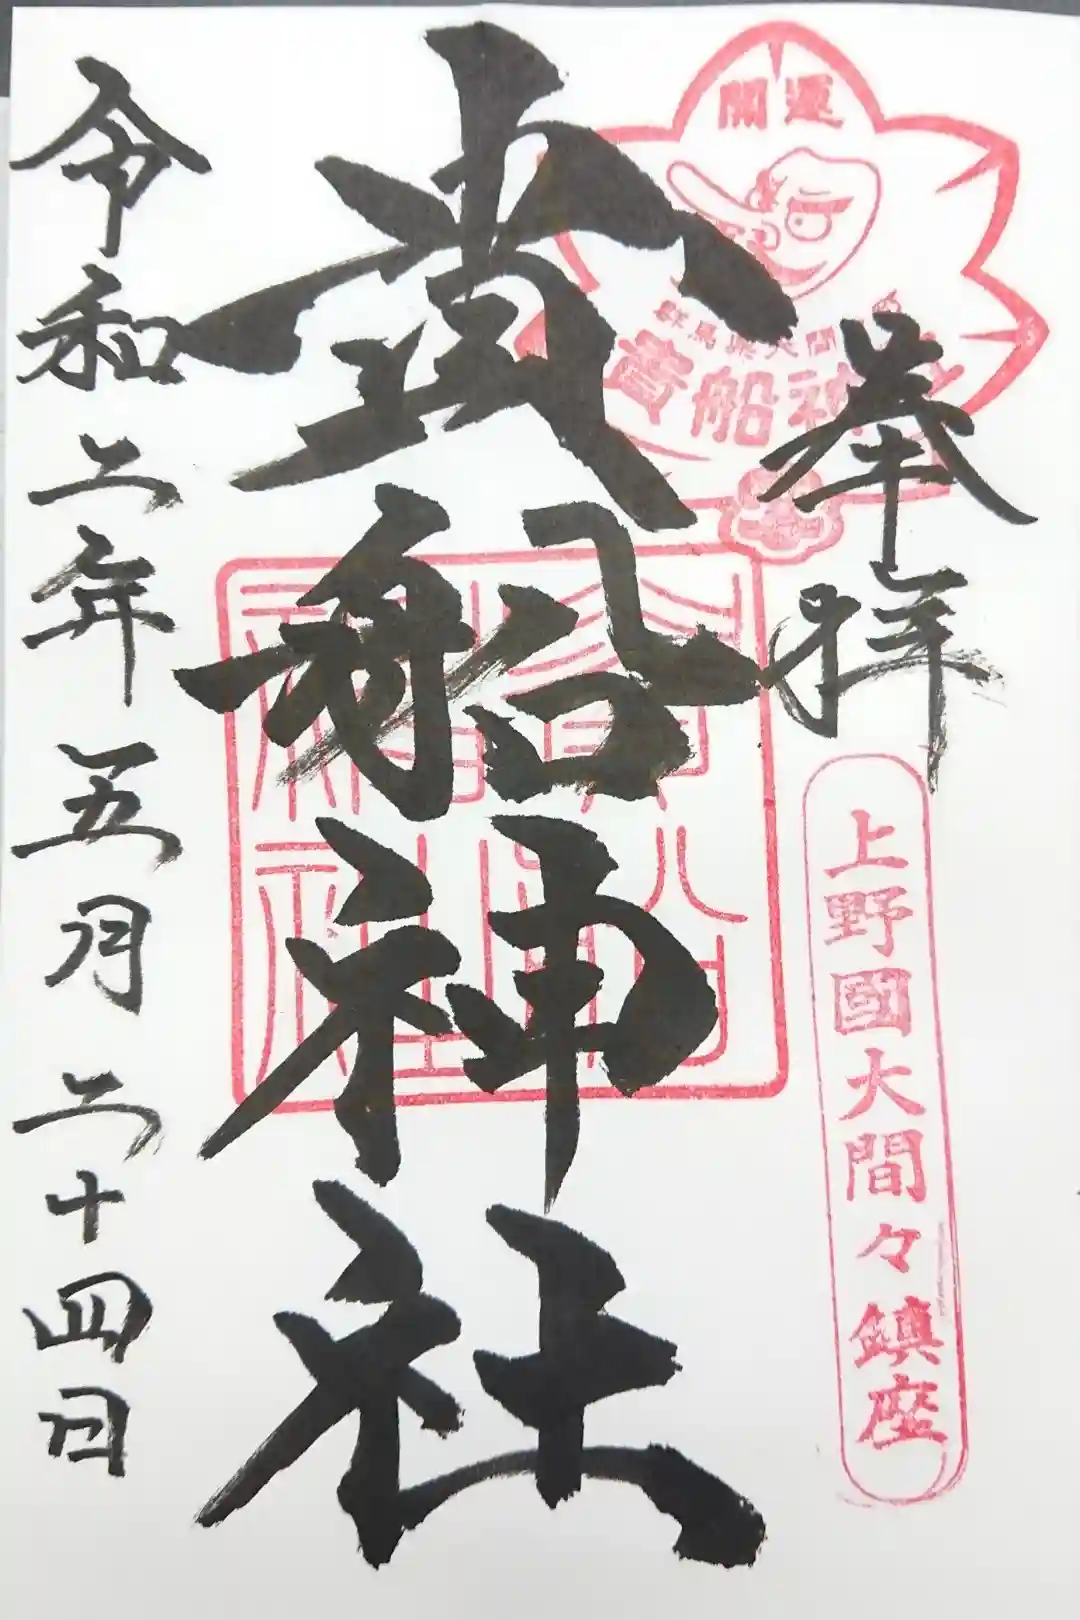 開運
群馬県大間
貴船神
奉拝
上野國大間々鎮座
貴船神社
令和二年五月二十四日